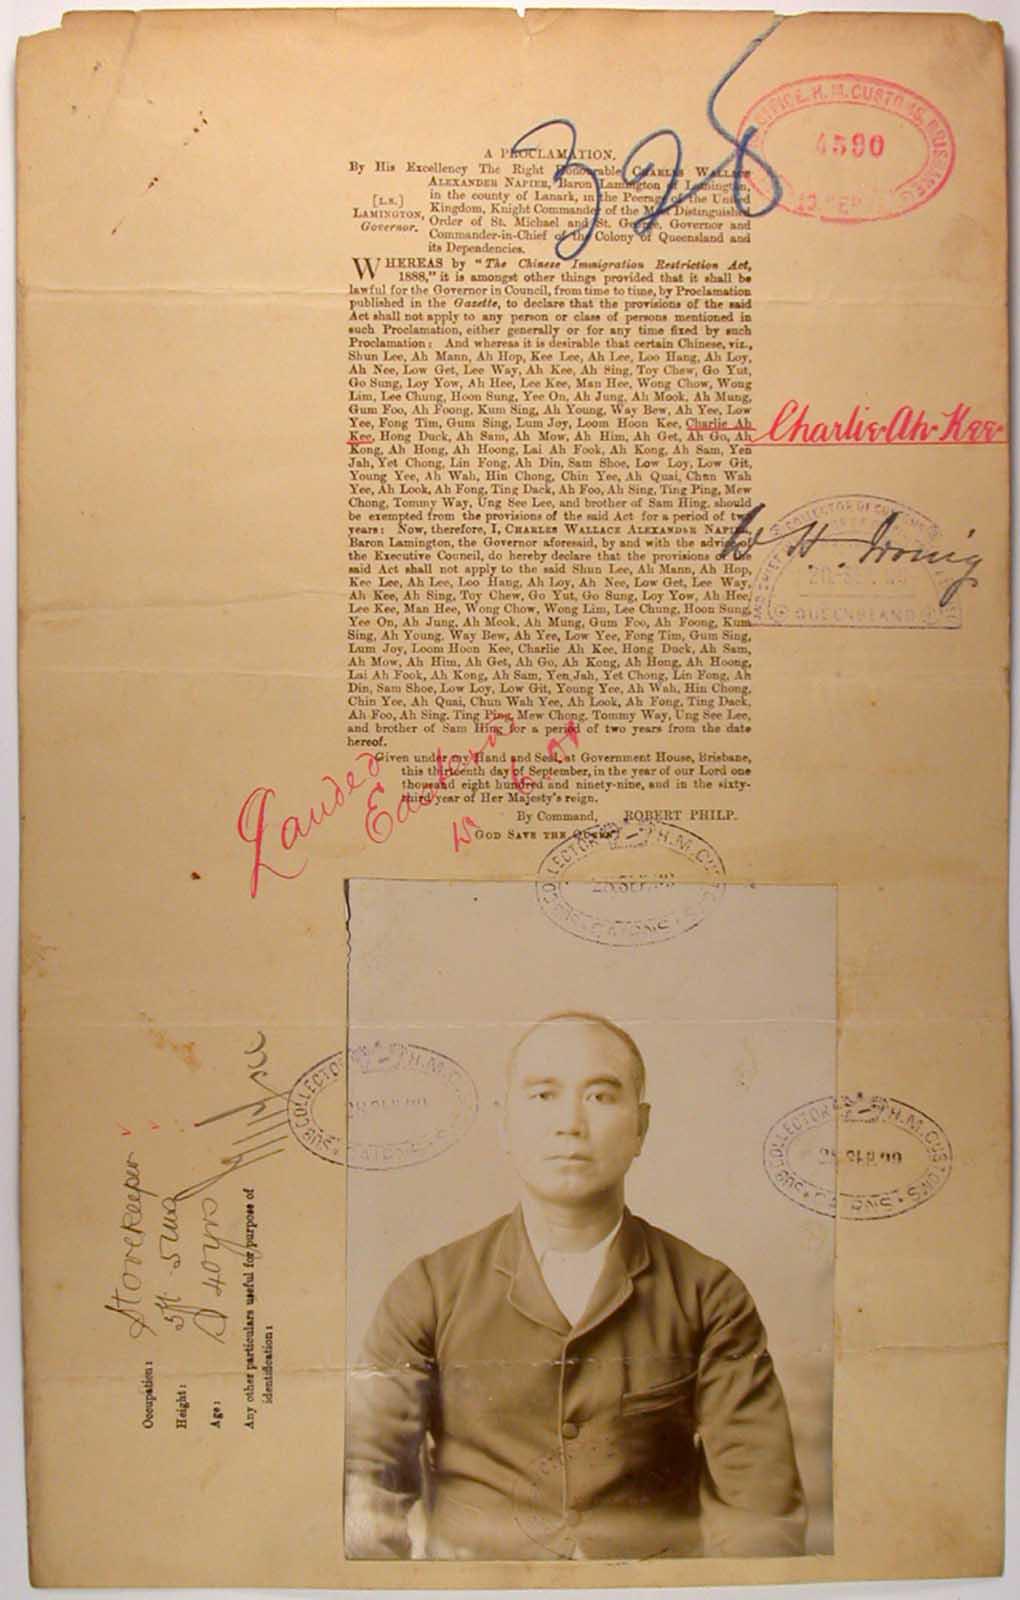 325
OFFICE, H. M. CUSTOMS, BRISBANE
4590
13 SEP
A PROCLAMATION.
By His Excellency The Right Honourable CHARLES WALLACE
ALEXANDER NAPIER, Baron Lamington of Lamington,
in the county of Lanark, in the Peerage of the United
Kingdom, Knight Commander of the Most Distinguished
Order of St. Michael and St. George, Governor and
Commander-in-Chief of the Colony of Queensland and
its Dependencies.
[L.S.]
LAMINGTON,
Governor.
WHEREAS by "The Chinese Immigration Restriction Act,
1888," it is amongst other things provided that it shall be
lawful for the Governor in Council, from time to time, by Proclamation
published in the Gazette, to declare that the provisions of the said
Act shall not apply to any person or class of persons mentioned in
such Proclamation, either generally or for any time fixed by such
Proclamation: And whereas it is desirable that certain Chinese, viz.,
Shun Lee, Ah Mann, Ah Hop, Kee Lee, Ah Lee, Loo Hang, Ah Loy,
Ah Nee, Low Get, Lee Way, Ah Kee, Ah Sing, Toy Chew, Go Yut,
Go Sung, Loy Yow, Ah Hee, Lee Kee, Man Hee, Wong Chow, Wong
Lim, Lee Chung, Hoon Sung, Yee On, Ah Jung, Ah Mook, Ah Mung,
Gum Foo, Ah Foong, Kum Sing, Ah Young, Way Bew, Ah Yee, Low
Yee, Fong Tim, Gum Sing, Lum Joy, Loom Hoon Kee, Charlie Ah
Kee, Hong Duck, Ah Sam, Ah Mow, Ah Him, Ah Get, Ah Go, Ah
Kong, Ah Hong, Ah Hoong, Lai Ah Fook, Ah Kong, Ah Sam, Yen
Jah, Yet Chong, Lin Fong, Ah Din, Sam Shoe, Low Loy, Low Git,
Young Yee, Ah Wah, Hin Chong, Chin Yee, Ah Quai, Chun Wah
Yee, Ah Look, Ah Fong, Ting Dack, Ah Foo, Ah Sing, Ting Ping, Mew
Chong, Tommy Way, Ung See Lee, and brother of Sam Hing, should
be exempted from the provisions of the said Act for a period of two
years: Now, therefore, I, CHARLES WALLACE ALEXANDER NAPIER,
Baron Lamington, the Governor aforesaid, by and with the advice of
the Executive Council, do hereby declare that the provisions of the
said Act shall not apply to the said Shun Lee, Ah Mann, Ah Hop,
Kee Lee, Ah Lee, Loo Hang, Ah Loy, Ah Nee, Low Get, Lee Way,
Ah Kee, Ah Sing, Toy Chew, Go Yut, Go Sung, Loy Yow, Ah Hee,
Lee Kee, Man Hee, Wong Chow, Wong Lim, Lee Chung, Hoon Sung,
Yee On, Ah Jung, Ah Mook, Ah Mung, Gum Foo, Ah Foong, Kum
Sing, Ah Young, Way Bew, Ah Yee, Low Yee, Fong Tim, Gum Sing,
Lum Joy, Loom Hoon Kee, Charlie Ah Kee, Hong Duck, Ah Sam,
Ah Mow, Ah Him, Ah Get, Ah Go, Ah Kong, Ah Hong, Ah Hoong,
Lai Ah Fook, Ah Kong, Ah Sam, Yen Jah, Yet Chong, Lin Fong, Ah
Din, Sam Shoe, Low Loy, Low Git, Young Yee, Ah Wah, Hin Chong,
Chin Yee, Ah Quai, Chun Wah Yee, Ah Look, Ah Fong, Ting Dack,
Ah Foo, Ah Sing, Ting Ping, Mew Chong, Tommy Way, Ung See Lee,
and brother of Sam Hing for a period of two years from the date
hereof.
Given under my Hand and Seal, at Government House, Brisbane,
this thirteenth day of September, in the year of our Lord one
thousand eight hundred and ninety-nine, and in the sixty-
third year of Her Majesty's reign.
By Command, ROBERT PHILP.
GOD SAVE THE QUEEN!
Charlie Ah Kee
W H Irving
COLLECTOR OF CUSTOMS
QUEENSLAND
Landed
Eastern
SUB COLLECTOR H.M. CUSTOMS
28 SEP 99
SUB COLLECTOR H.M. CUSTOMS
28 SEP 99
SUB COLLECTOR H.M. CUSTOMS
28 SEP 99
Occupation: Storekeeper
Height: 5ft 5
Age: 40 yrs
Any other particulars useful for purpose of
identification: